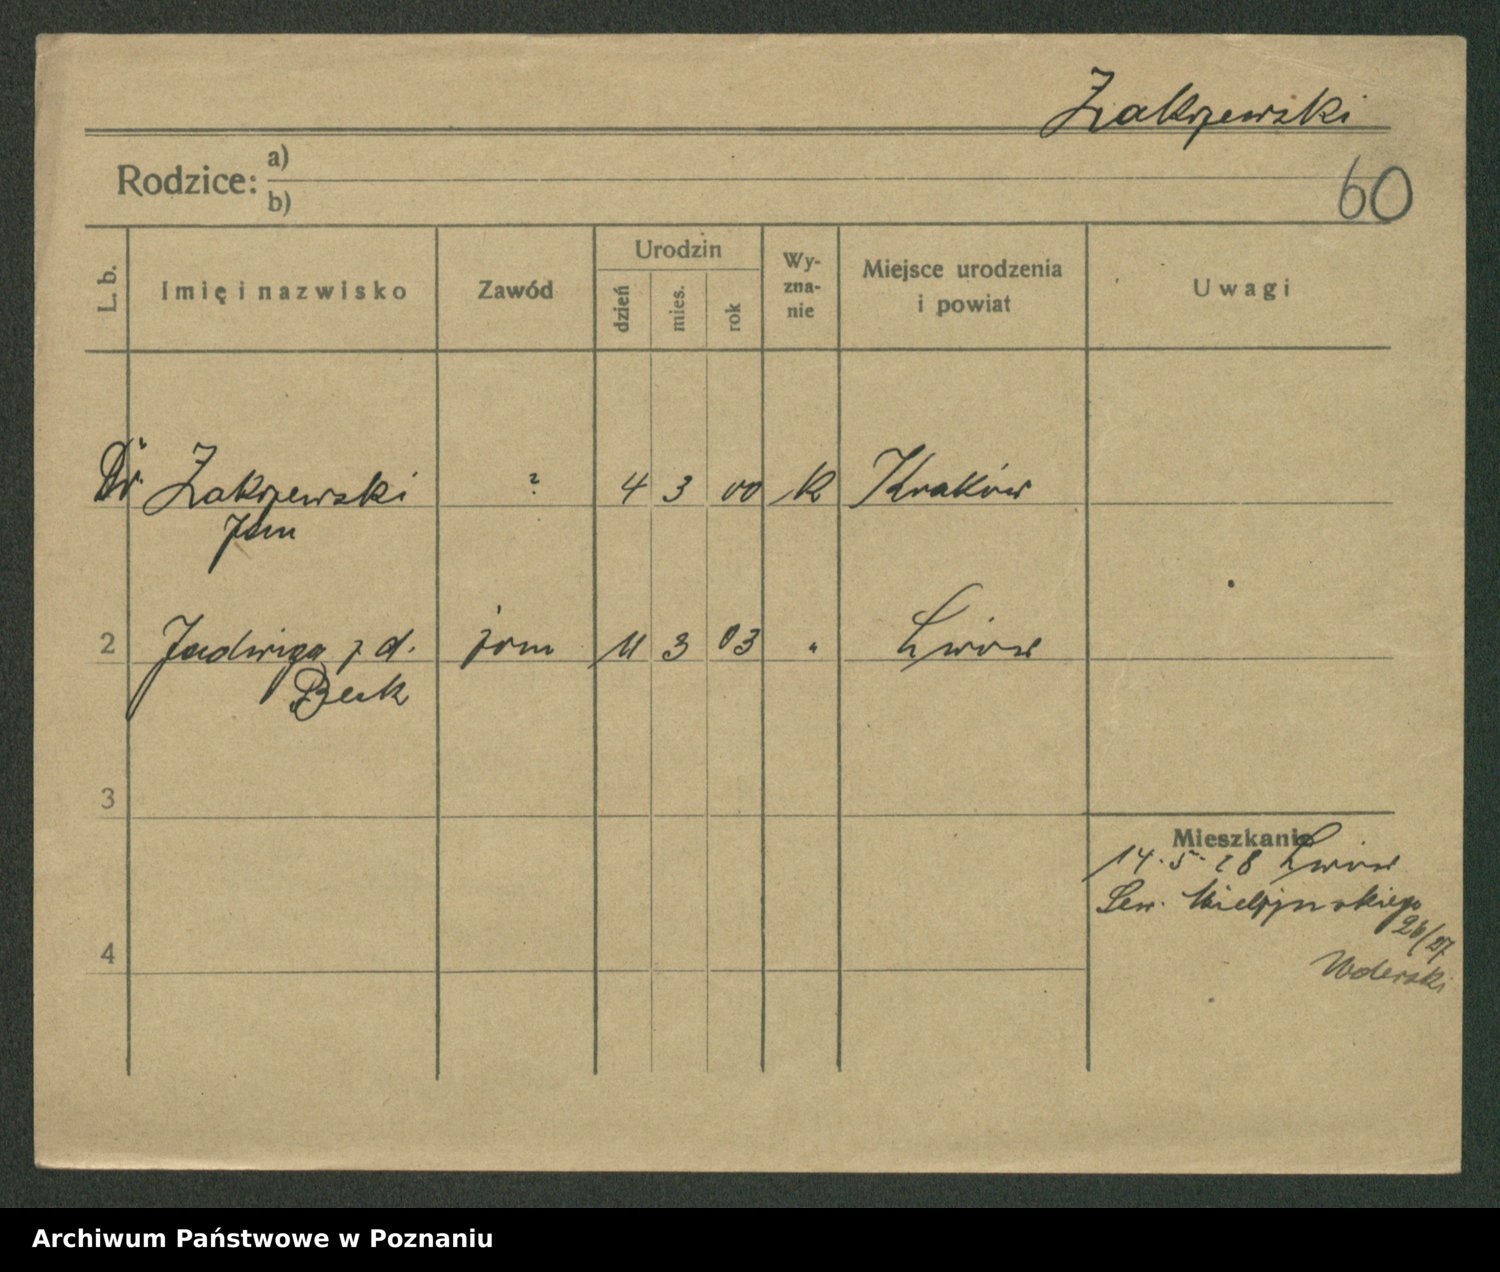 Zakrzewski
Rodzice: a)
b)
60
L. b.
Imię i nazwisko
Zawód
Urodzin
dzień
mies.
rok
Wy-
zna-
nie
Miejsce urodzenia
i powiat
Uwagi
Dr. Zakrzewski ? 4 3 00 K Kraków
Jan
2 Jadwiga z d. żona 11 3 03 " Lwów
Beck
3
Mieszkanie
14. 5. 28 Lwów
Sew. Mielżyńskiego
26/27
4
Archiwum Państwowe w Poznaniu